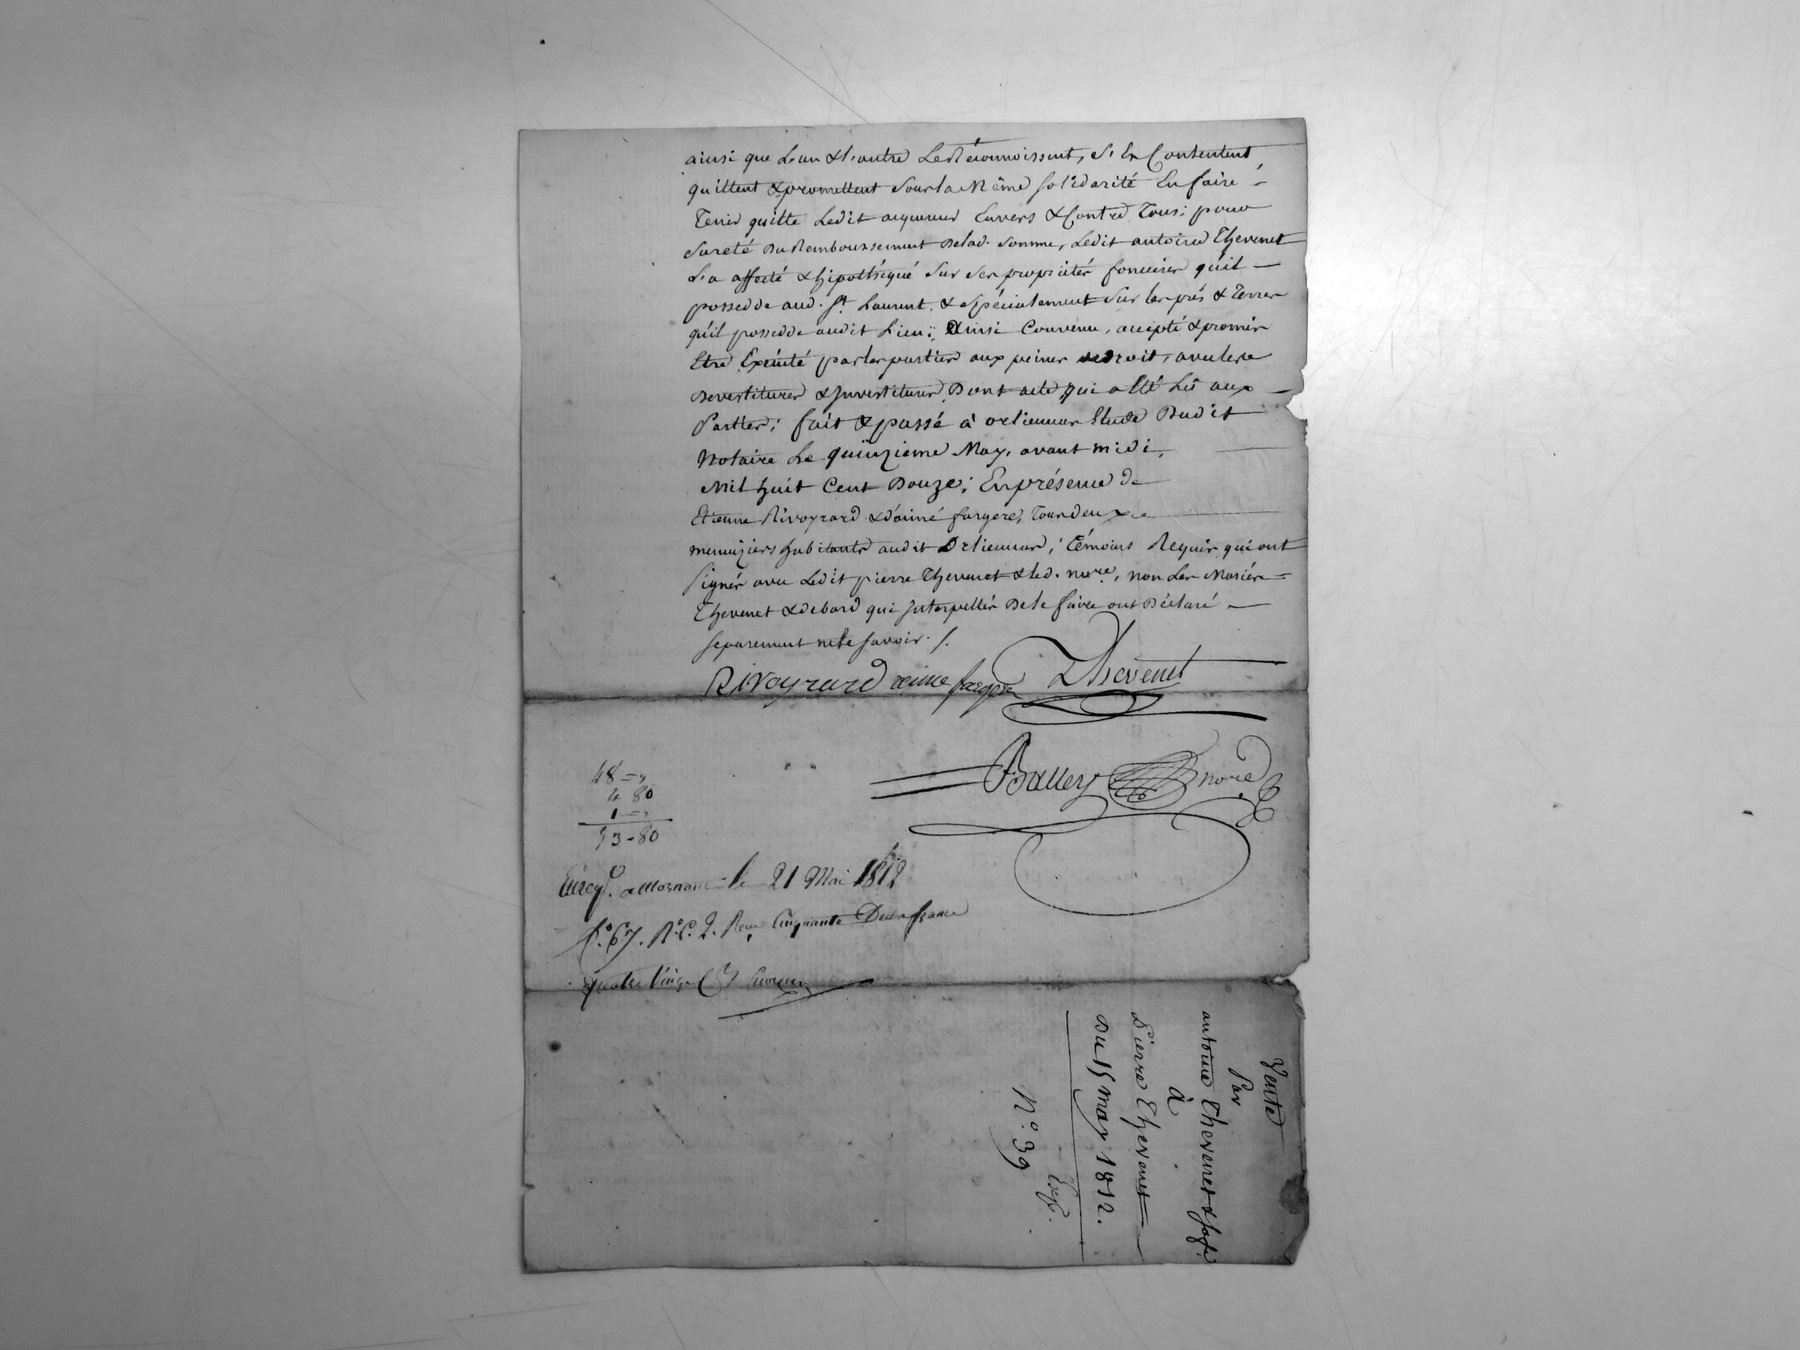 ainsi que L'un & L'autre Le Reconnoissent, S'En Contentent,
quittent & promettent Sous la Même Solidarité En faire
Tenir quitte Ledit acquereur Envers & Contre Tous; pour
Sureté Du Remboursement Delad. Somme, Ledit antoine Thevenet
L'a affecté & hipothéqué Sur Ses propriétés foncieres qu'il
possedde aud. St. Laurent, & Spécialement Sur les prés & Terres
qu'il possedde audit Lieu; Ainsi Convenu, accepté & promis
Etre Exécuté par les parties aux peines de droit, avec les
Devestitures & Investitures, Dont acte qui a Eté Lû aux
Parties; fait & passé à orlienas Etude Dudit
Notaire Le quinzieme May, avant midi,
Mil huit Cent Douze; En présence de
Etienne Rivoyrard & d'aimé fargere, Tous deux
menuiziers habitants audit Orlienas, Témoins Requis qui ont
Signés avec Ledit pierre Thevenet & led. nore, non Les Mariés
Thevenet & debard qui Interpellés De le faire ont Déclaré
Separement ne le Savoir ./.
Rivoyrard aime fargere Thevenet
Balley nore
48 = "
4 80
1 = "
53 - 80
Enregt. a Mornant le 21 Mai 1812
fo. 67. Ro. C. 2. Reçu Cinquante Deux francs
quatre vingt
Vente
Par
antoine Thevenet & Sa fe
à
Pierre Thevenet
Du 15 may 1812.
Exp.
No. 39